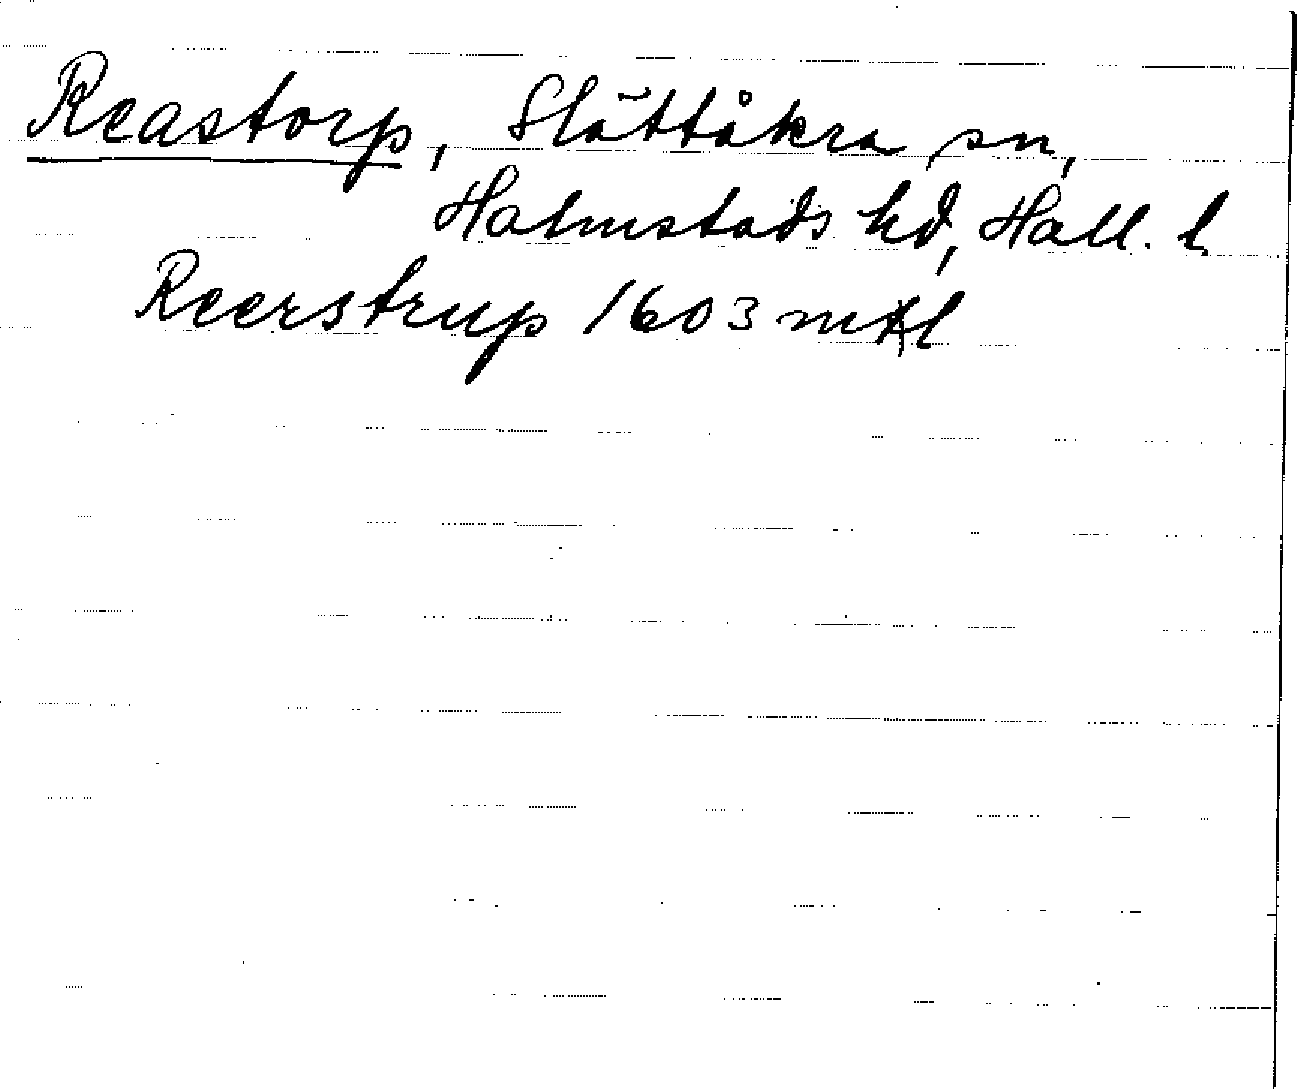 Reastorp, Slättåkra sn,
Halmstads hd, Hall. l.
Reerstrup 1603 mtl